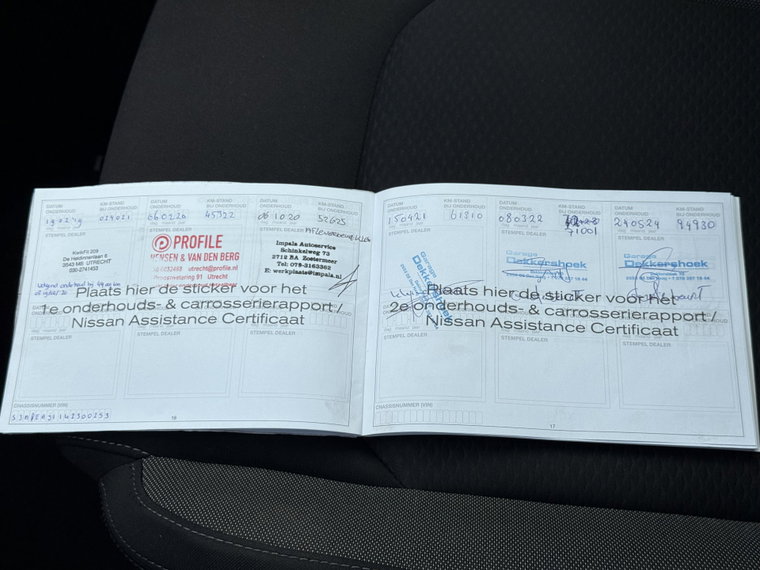 DATUM ONDERHOUD
KM-STAND BIJ ONDERHOUD
DATUM ONDERHOUD
KM-STAND BIJ ONDERHOUD
DATUM ONDERHOUD
KM-STAND BIJ ONDERHOUD
060220
45322
061020
52625
STEMPEL DEALER
STEMPEL DEALER
Kwikfit 209
De Heldinnenlaan 6
3543 MB UTRECHT
030-2741453
PROFILE
JENSEN & VAN DEN BERG
utrecht@profile.nl
91 Utrecht
Impala Autoservice
Schinkelweg 73
2712 BA Zoetermeer
Tel: 079-3163362
E: werkplaats@impala.nl
Plaats hier de sticker voor het
1e onderhouds- & carrosserierapport /
Nissan Assistance Certificaat
STEMPEL DEALER
STEMPEL DEALER
STEMPEL DEALER
CHASSISNUMMER (VIN)
16
DATUM ONDERHOUD
KM-STAND BIJ ONDERHOUD
DATUM ONDERHOUD
KM-STAND BIJ ONDERHOUD
DATUM ONDERHOUD
KM-STAND BIJ ONDERHOUD
150421
61810
080322
71001
270524
94930
STEMPEL DEALER
STEMPEL DEALER
STEMPEL DEALER
Garage
Dekkershoek
Garage
Dekkershoek
Garage
Dekkershoek
Plaats hier de sticker voor het
2e onderhouds- & carrosserierapport /
Nissan Assistance Certificaat
STEMPEL DEALER
STEMPEL DEALER
STEMPEL DEALER
CHASSISNUMMER (VIN)
17